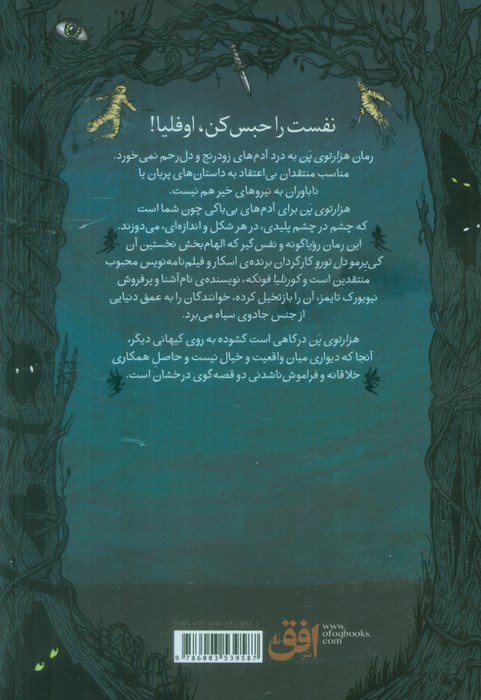 نفست را حبس کن، اوفلیا!
رمان هزارتوی پَن به درد آدم‌های زودرنج و دل‌رحم نمی‌خورد.
مناسب منتقدان بی‌اعتقاد به داستان‌های پریان یا
ناباوران به نیروهای خیر هم نیست.
هزارتوی پَن برای آدم‌های بی‌باکی چون شما است
که چشم در چشم پلیدی، در هر شکل و اندازه‌ای، می‌دوزند.
این رمان رؤیاگونه و نفس‌گیر که الهام‌بخش نخستین آن
گی‌یرمو دل تورو کارگردان برنده‌ی اسکار و فیلم‌نامه‌نویس محبوب
منتقدین است و کورنلیا فونکه، نویسنده‌ی نام‌آشنا و پرفروش
نیویورک تایمز، آن را بازتخیل کرده، خوانندگان را به عمق دنیایی
از جنس جادوی سیاه می‌برد.
هزارتوی پَن درگاهی است گشوده به روی کیهانی دیگر،
آنجا که دیواری میان واقعیت و خیال نیست و حاصل همکاری
خلاقانه و فراموش‌ناشدنی دو قصه‌گوی درخشان است.
ISBN: 978-600-353-958-7
9 786003 539587
افق
نشر
www.
ofoqbooks.
com